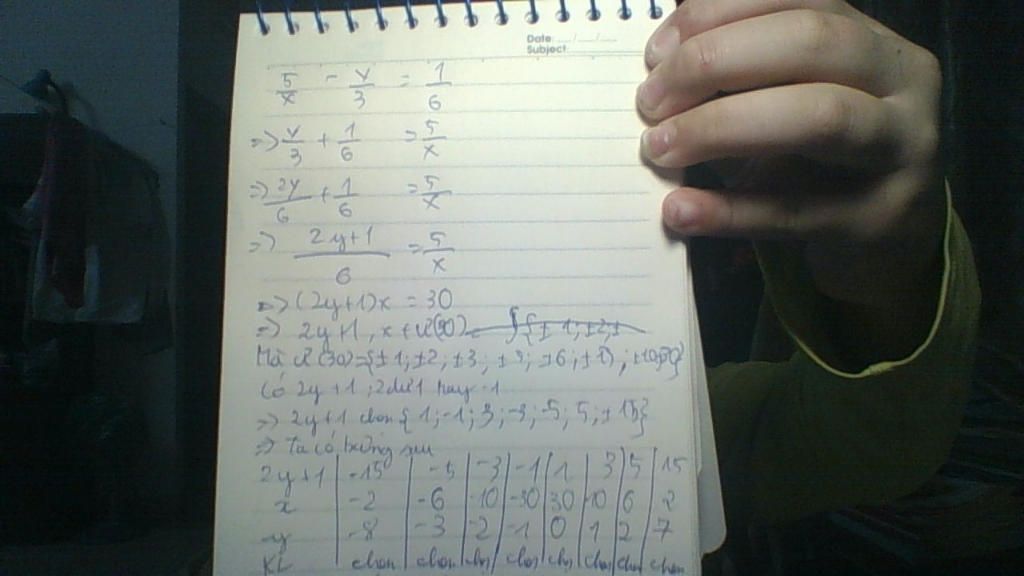 Date: __/__/__
Subject:
5/x - y/3 = 1/6
=> y/3 + 1/6 = 5/x
=> 2y/6 + 1/6 = 5/x
=> (2y+1)/6 = 5/x
=> (2y+1)x = 30
=> 2y+1, x ∈ Ư(30) {±1; ±2; ±
Mà Ư(30) = {±1; ±2; ±3; ±5; ±6; ±15; ±10; 30}
Có 2y+1 : 2 dư 1 hay -1
=> 2y+1 chọn {1; -1; 3; -3; -5; 5; ±15}
=> Ta có bảng sau
2y+1 | -15 | -5 | -3 | -1 | 1 | 3 | 5 | 15
x | -2 | -6 | -10 | -30 | 30 | 10 | 6 | 2
y | -8 | -3 | -2 | -1 | 0 | 1 | 2 | 7
KL | chọn | chọn | chọn | chọn | chọn | chọn | chọn | chọn